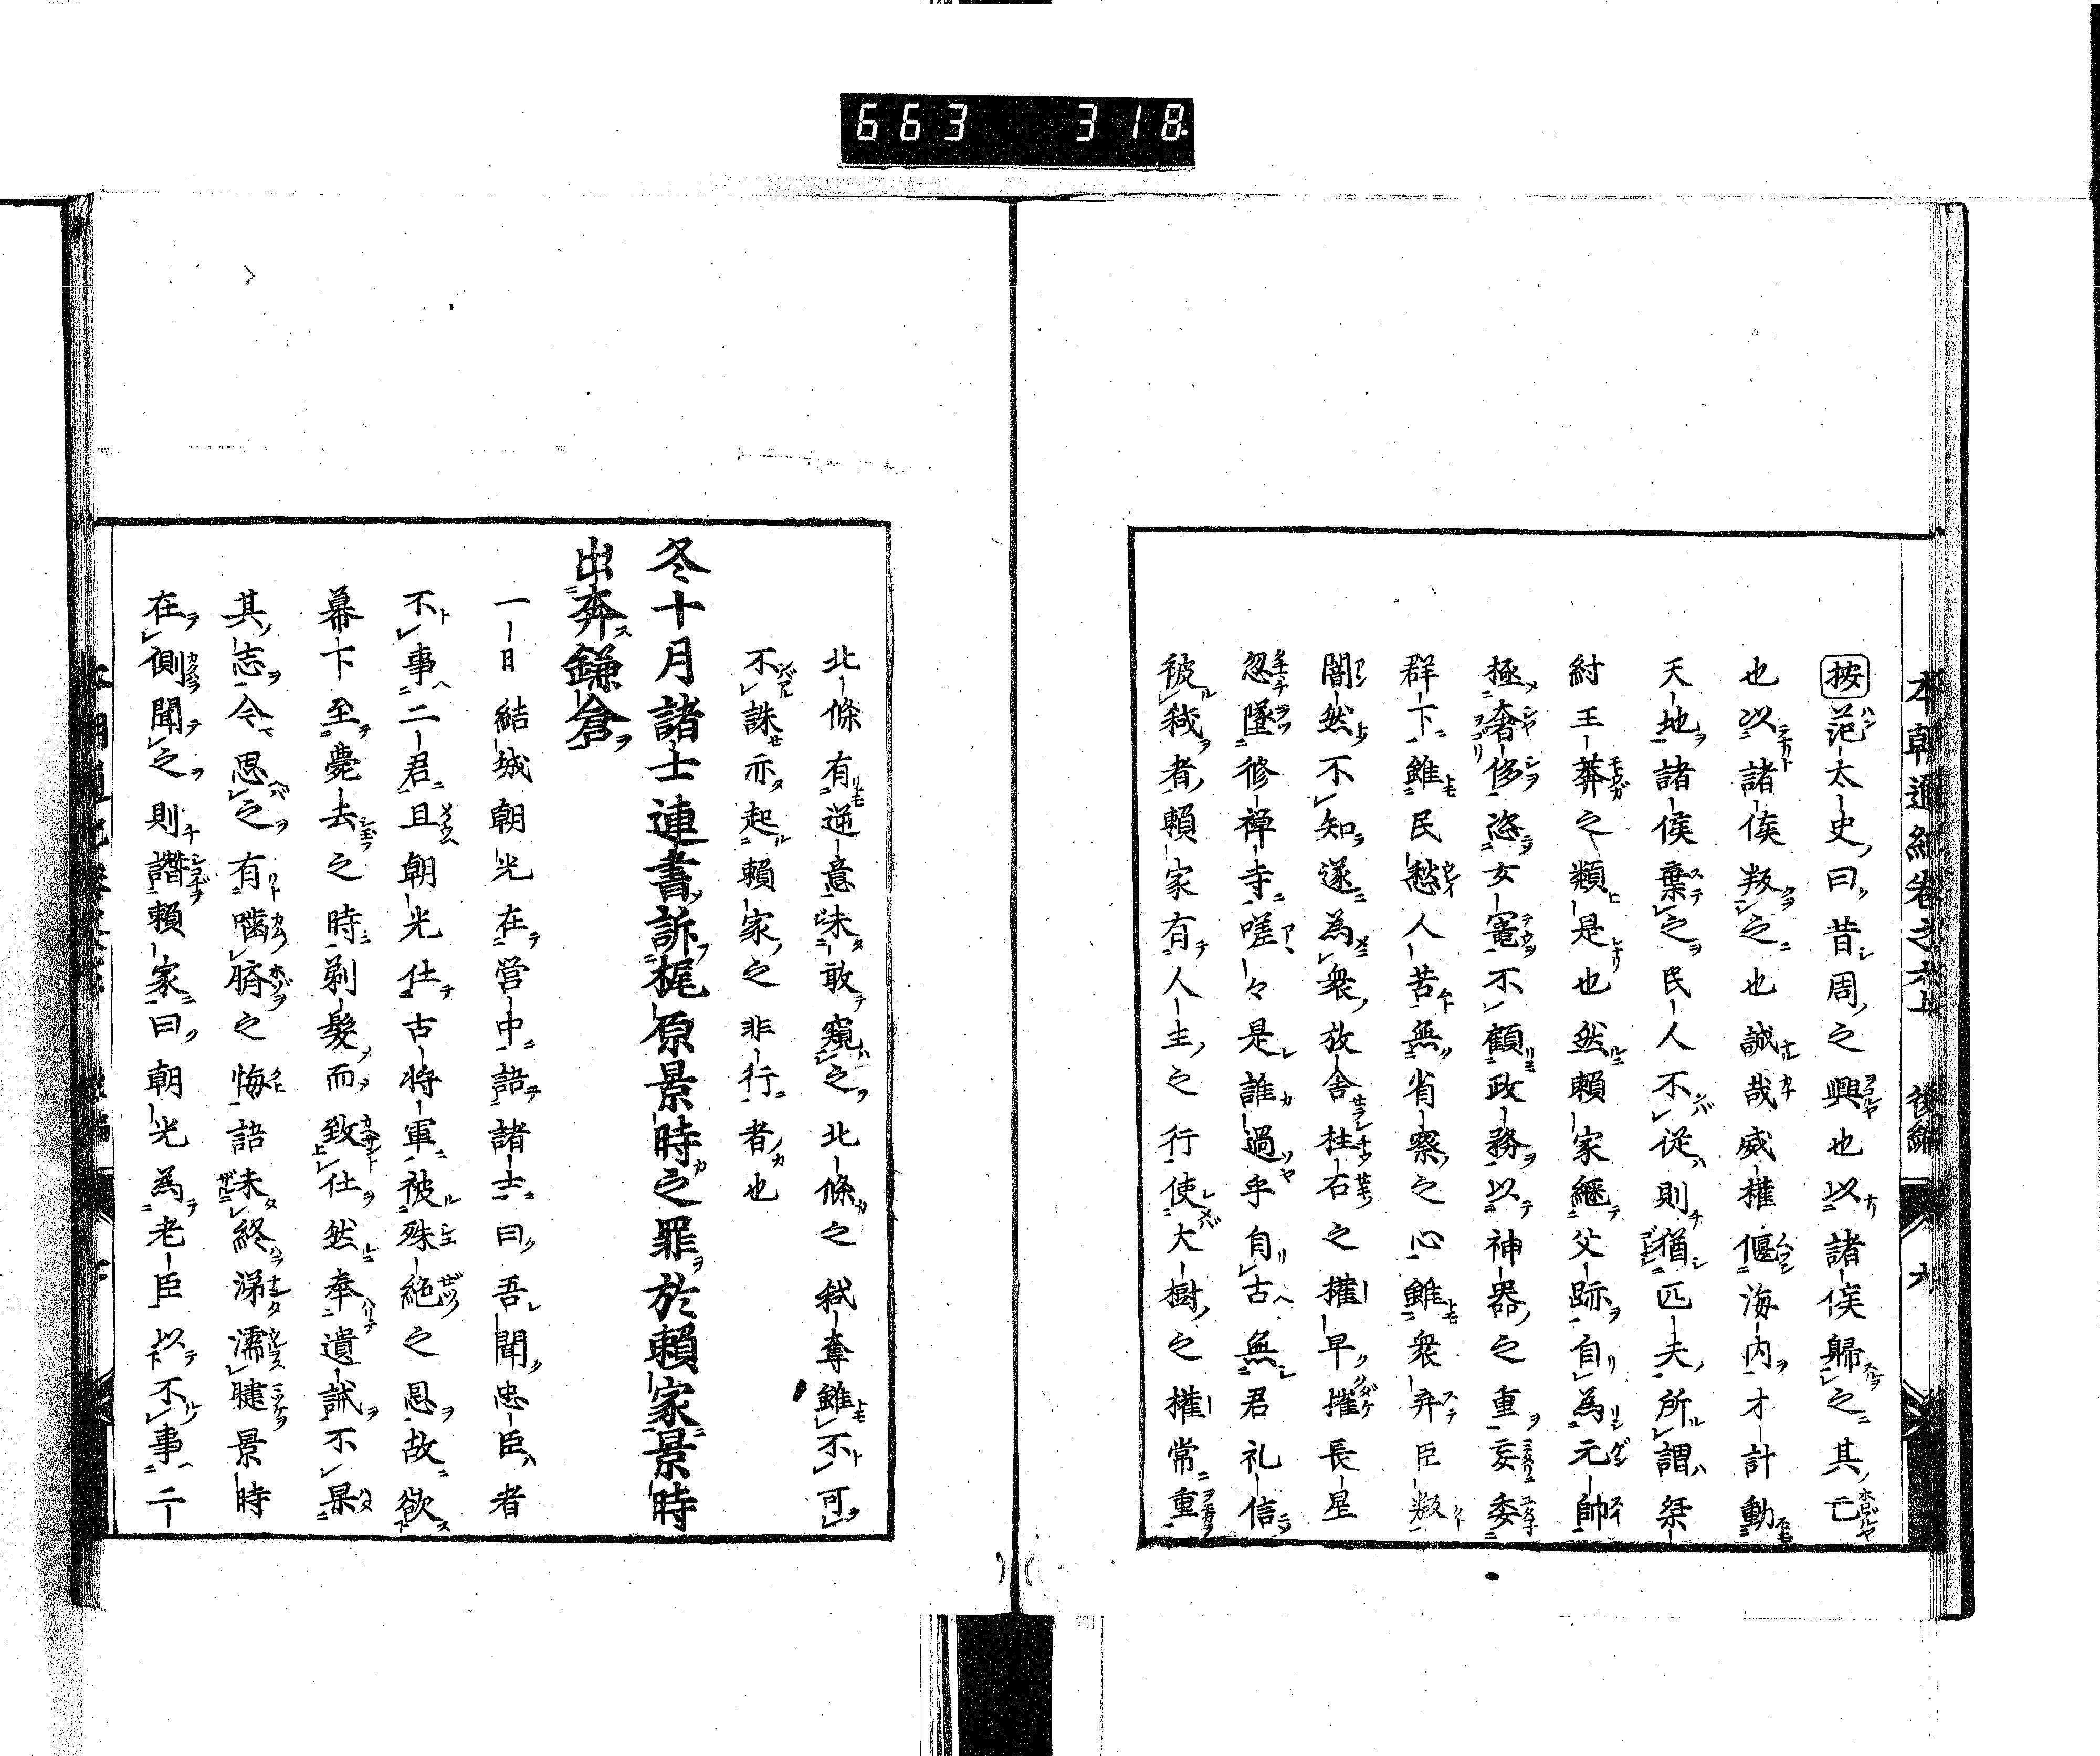 663 318
本朝通紀卷之六上 後編 六
按范太史曰昔周之興也以諸侯歸之其亡
也以諸侯叛之也誠哉威權偃海内才計動
天地諸侯棄之民人不從則猶匹夫所謂桀
紂王莽之類是也然賴家継父跡自為元帥
極奢侈恣女寵不顧政務以神器之重妄委
群下雖民愁人苦無省察之心雖衆弃臣叛
闇然不知遂為衆放舍柱石之權早摧長星
忽墜修禅寺嗟々是誰過乎自古無君礼信
被弑者賴家有人主之行使大樹之權常重
北條有逆意未敢窺之北條之弑奪雖不可
不誅亦起賴家之非行者也
冬十月諸士連書訴梶原景時之罪於賴家景時
出奔鎌倉
一日結城朝光在営中語諸士曰吾聞忠臣者
不事二君且朝光仕古将軍被殊絶之恩故欲
幕下至薨去之時剃髮而致仕然奉遺誡不果
其志今思之有噛臍之悔語未終涕濡睫景時
在側聞之則譖賴家曰朝光為老臣以不事二